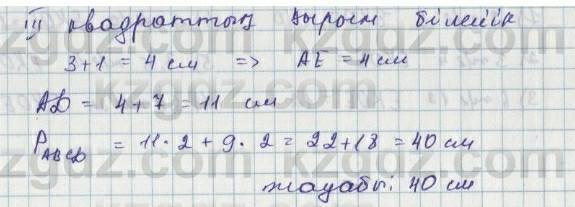 III квадраттың қырын білеміз
3+1 = 4 см => AE = 4 см
AD = 4+7 = 11 см
P ABCD = 11·2 + 9·2 = 22+18 = 40 см
жауабы: 40 см